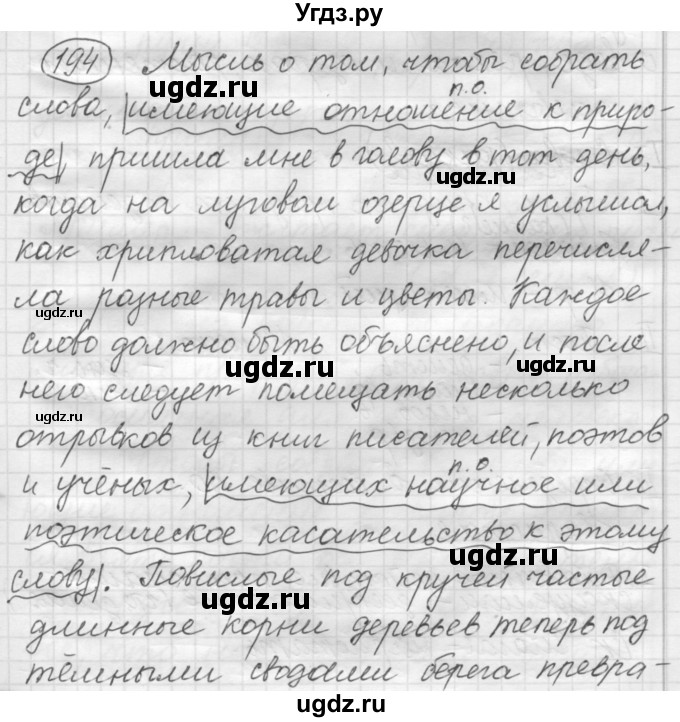 Угдз.ру
194 Мысль о том, чтобы собрать
ugdz.ru
п.о.
слова, имеющие отношение к приро-
ugdz.ru
ugdz.ru
де, пришла мне в голову в тот день,
ugdz.ru
когда на луговом озерце я услышал,
как хрипловатая девочка перечисля-
ugdz.ru
ла разные травы и цветы. Каждое
ugdz.ru
слово должно быть объяснено, и после
ugdz.ru
него следует помещать несколько
ugdz.ru
отрывков из книг писателей, поэтов
ugdz.ru
п.о.
и учёных, имеющих научное или
ugdz.ru
поэтическое касательство к этому
ugdz.ru
слову. Повислые под кручей частые
ugdz.ru
длинные корни деревьев теперь под
ugdz.ru
тёмными сводами берега превра-
ugdz.ru
ugdz.ru